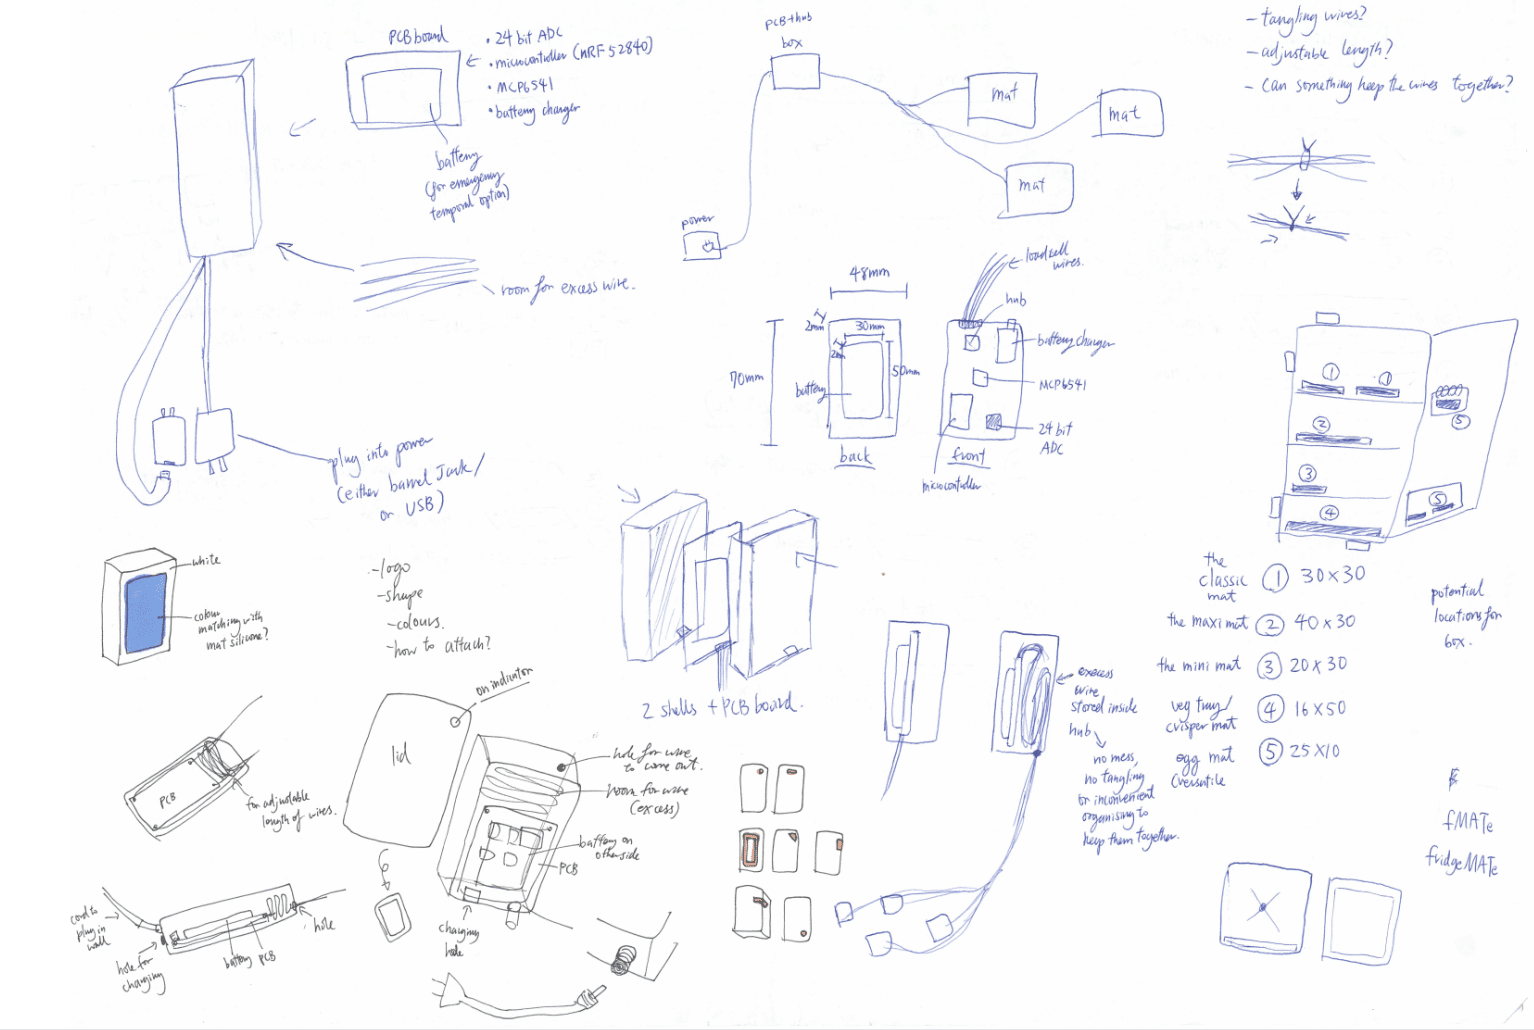 PCB board
• 24 bit ADC
• microcontroller (nRF 52840)
• MCP6541
• battery charger
battery
(for emergency
temporal option)
room for excess wire.
plug into power
(either barrel Jack /
or USB)
PCB + hub
box
mat
mat
mat
power
- tangling wires?
- adjustable length?
- Can something keep the wires together?
48mm
2mm
30mm
2mm
70mm
50mm
battery
back
loadcell
wires.
hub
battery charger
MCP6541
24 bit
ADC
front
microcontroller
1
1
2
3
4
5
5
the
classic
mat
1 30×30
the maxi mat 2 40×30
the mini mat 3 20×30
veg tray/
crisper mat
4 16×50
egg mat
(versatile
5 25×10
potential
locations for
box.
fMATe
fridgeMATe
white
colour
matching with
mat silicone?
- logo
- shape
- colours.
- how to attach?
2 shells + PCB board.
excess
wire
stored inside
hub
no mess,
no tangling
or inconvenient
organising to
keep them together.
on indicator
lid
hole for wire
to come out.
room for wire
(excess)
battery on
other side
PCB
charging
hole
PCB
for adjustable
length of wires.
cord to
plug in
wall
hole for
charging
battery
PCB
hole